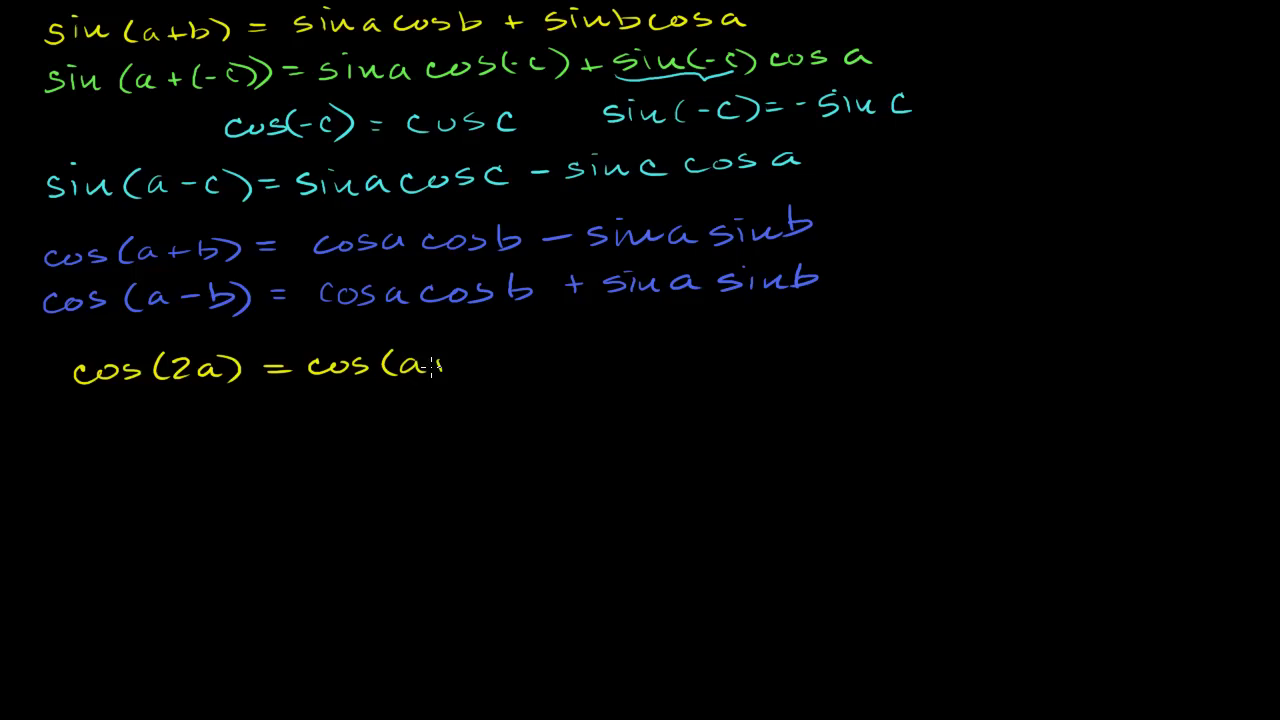 sin (a+b) = sin a cos b + sin b cos a
sin (a + (-c)) = sin a cos(-c) + sin(-c) cos a
cos(-c) = cos c sin(-c) = - sin c
sin(a-c) = sin a cos c - sin c cos a
cos(a+b) = cos a cos b - sin a sin b
cos (a-b) = cos a cos b + sin a sin b
cos(2a) = cos(a